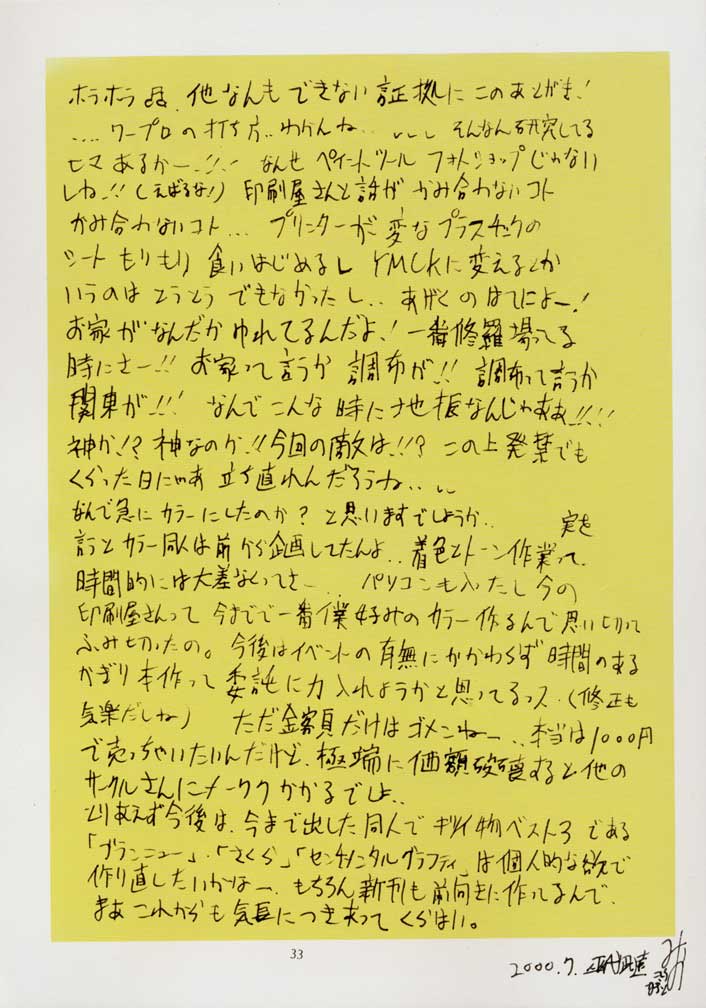 ホラホラ 、他なんもできない証拠にこのあとがき!
....ワープロの打ち方..わかんね... そんなん研究してる
ヒマあるかー..!!! なんせペイントツール フォトショップじゃない
しね..!!(えばるな!) 印刷屋さんと話が かみ合わないコト
かみ合わないコト... プリンターが変なプラスチックの
シートもりもり食いはじめるし YMCKに変えるとか
いうのはとうとうできなかったし.. あげくのはてによー!
お家がなんだかゆれてるんだよ!一番修羅場ってる
時にさー..!! お家って言うか 調布が!! 調布って言うか
関東が..!!! なんでこんな時に地振なんじゃああ!!!!
神か!?神なのか..!!今回の敵は..!!? この上発禁でも
くらった日にゃあ 立ち直れんだろうね....
なんで急にカラーにしたのか?と思いますでしょうか.. 実を
言うとカラー同人は前から企画してたんよ..着色とトーン作業って、
時間的には大差なくってさー... パソコンも入ったし今の
印刷屋さんって 今までで一番僕好みのカラー作るんで思い切って
ふみ切ったの。今後はイベントの有無にかかわらず時間のある
かぎり本作って 委託に力入れようかと思ってるっス.(修正も
気楽だしね) ただ金額だけはゴメンねー..本当は1000円
で売っちゃいたいんだけど、極端に価額破壊すると他の
サークルさんにメーワクかかるでしょ..
とりあえず今後は、今まで出した同人でキツイ物ベスト3である
「ブランニュー」・「さくら」「センチメンタルグラフティ」は個人的な欲で
作り直したいかなー.もちろん新刊も前向きに作ってるんで、
まあこれからも気長につき合って くらはい。
33
2000.7.